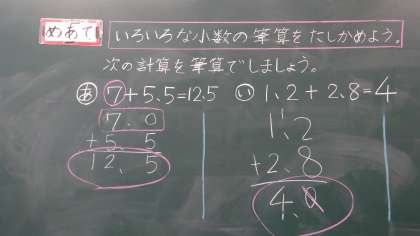 めあて いろいろな小数の筆算をたしかめよう。
次の計算を筆算でしましょう。
あ 7+5.5=12.5 い 1.2+2.8=4
7.0
+5.5
12.5
1.2
+2.8
4.0